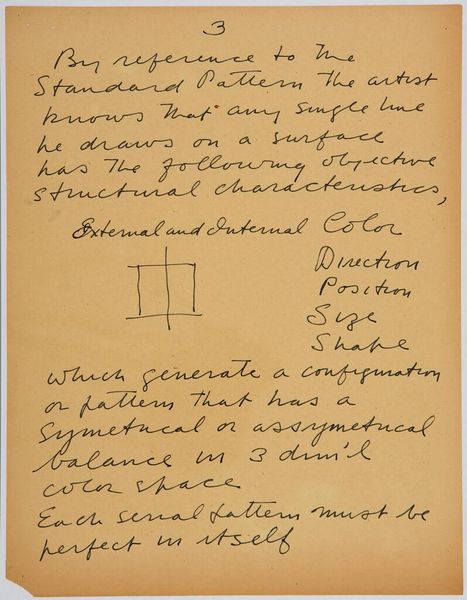 3
By reference to the
Standard Pattern the artist
knows that any single line
he draws on a surface
has the following objective
structural characteristics,
External and Internal Color
Direction
Position
Size
Shape
which generate a configuration
or pattern that has a
symetrical or assymetrical
balance in 3 dim'l
color space
Each serial pattern must be
perfect in itself